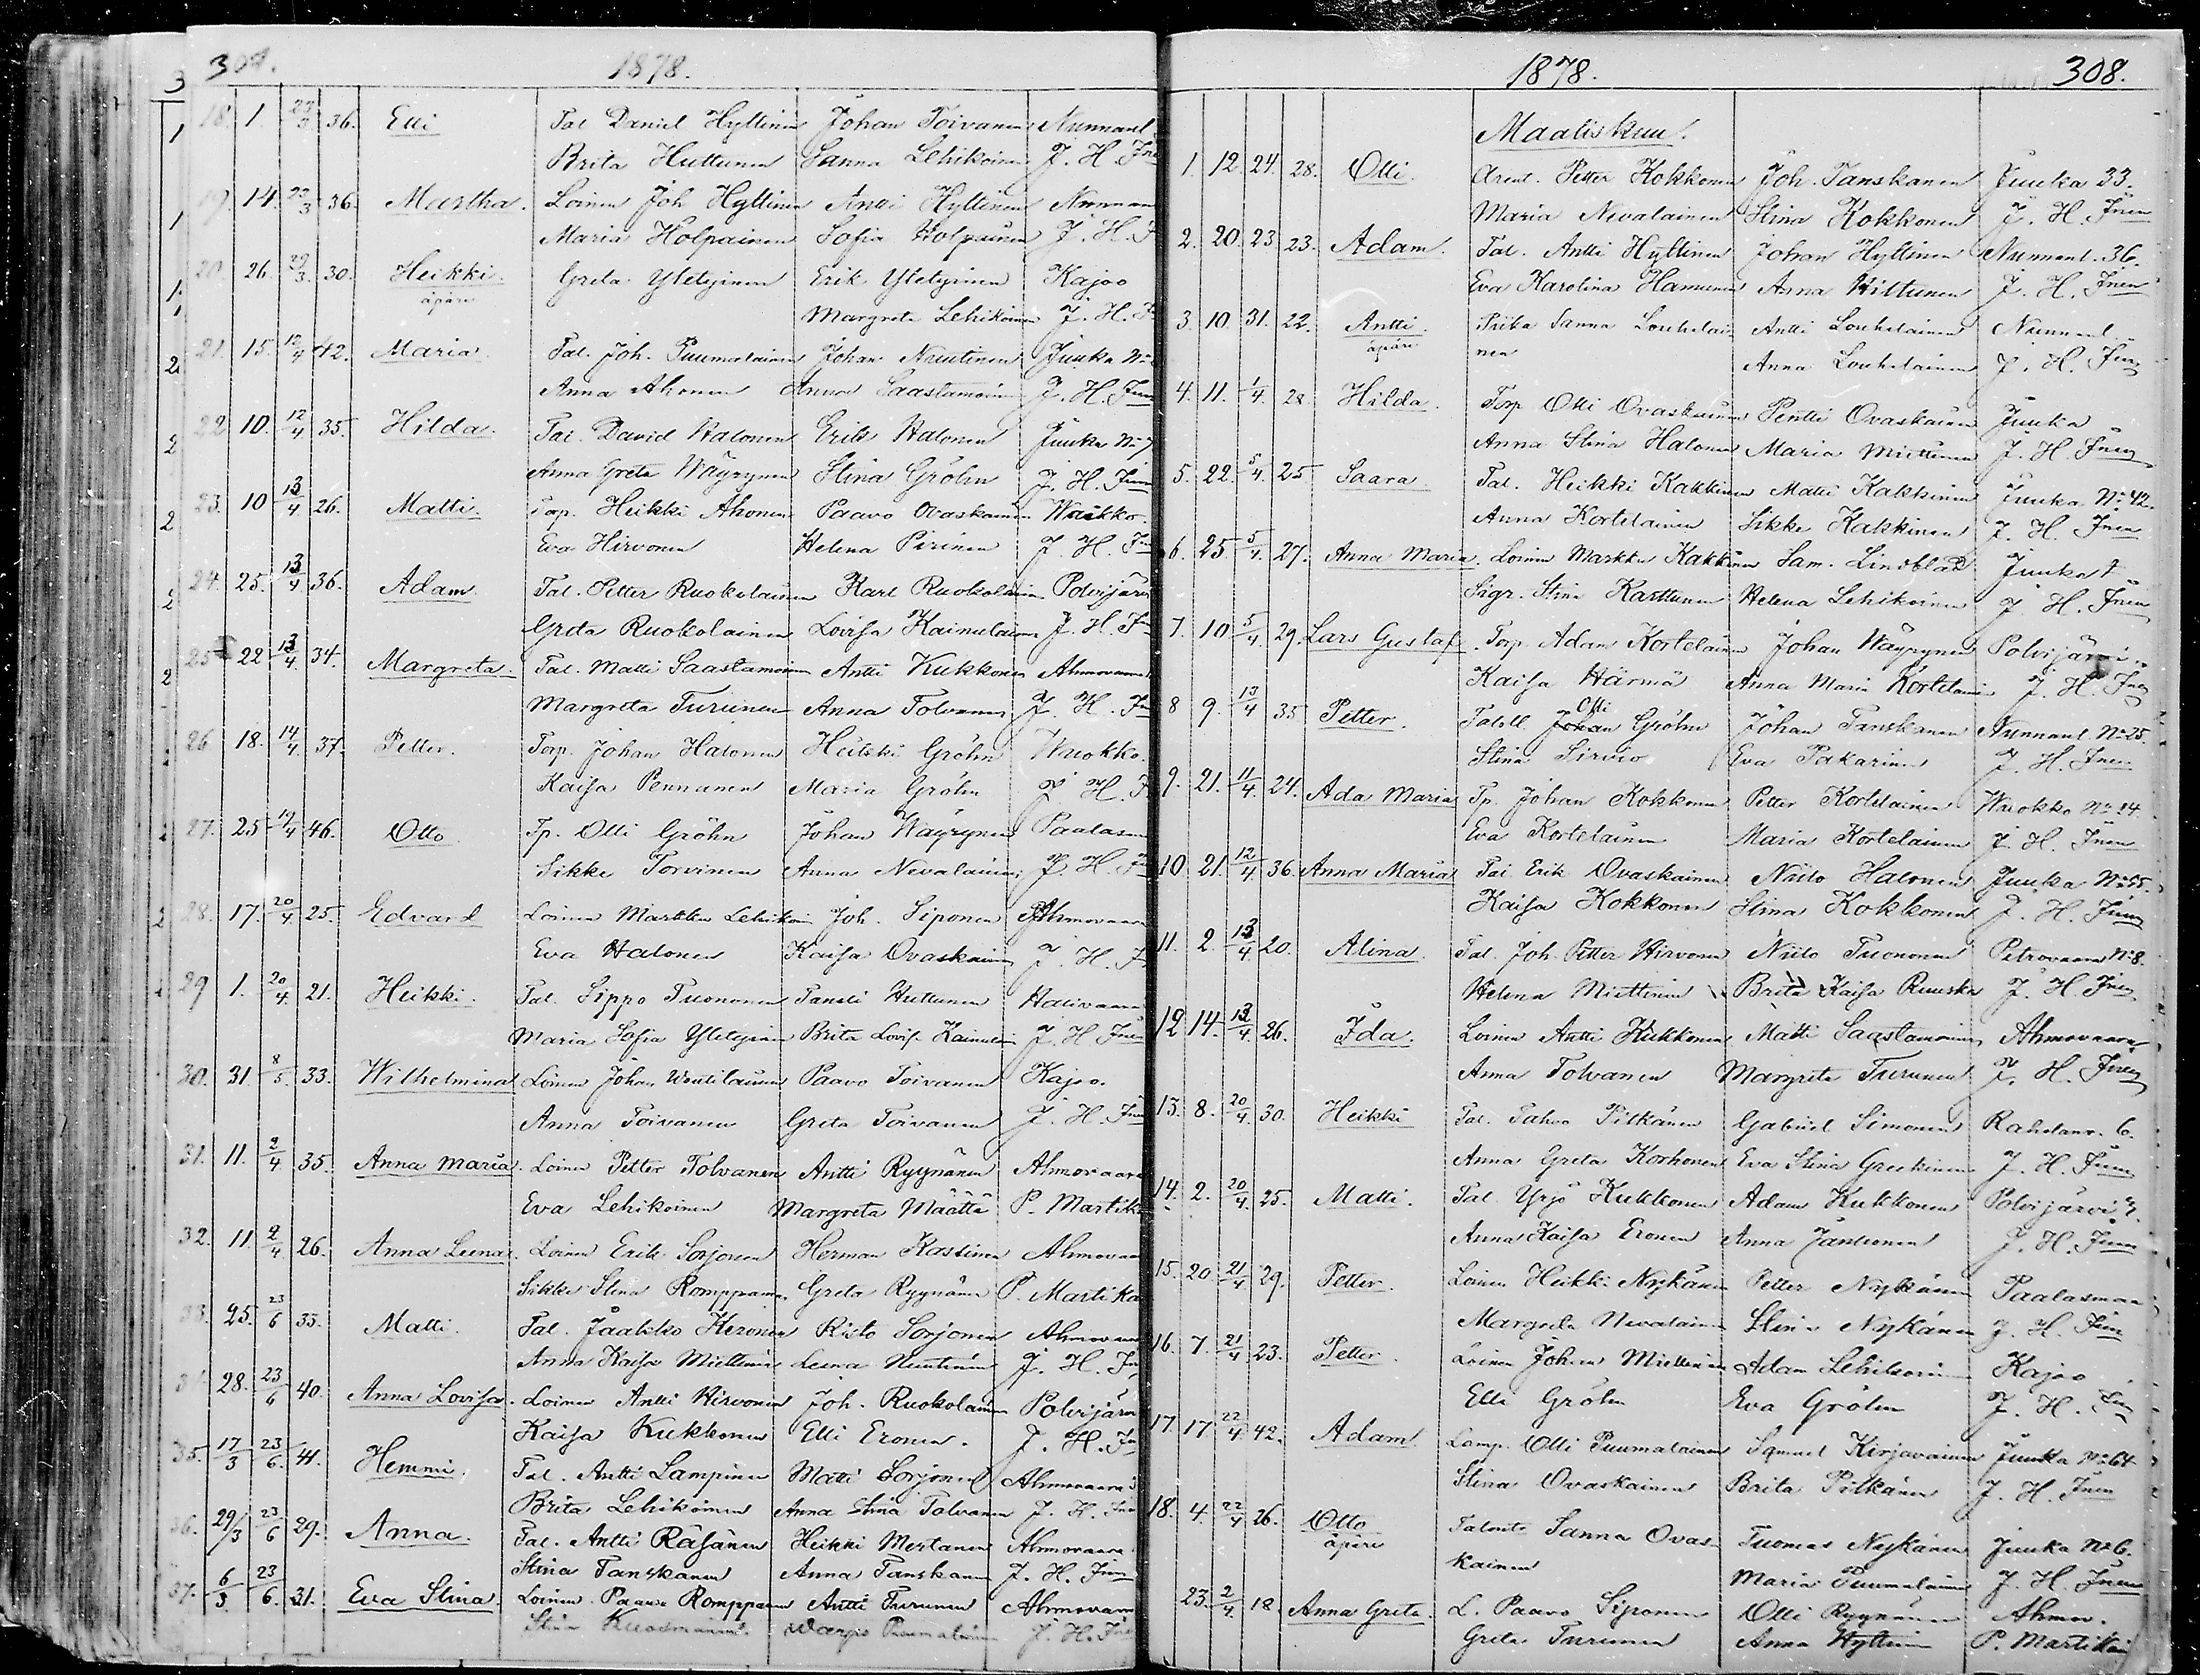 307. 1878.
18. 1. 23/3 36. Elli Tal Daniel Hyttinen Johan Toivanen Nunnanl
Brita Huttunen Sanna Lehikoinen J. H. Inen
19. 14. 23/3 36. Martha. Loinen Joh Hyttinen Antti Hyttinen Nunnan
Maria Holpainen Sofia Holpainen J. H.
20. 26. 29/3 30. Heikki. Greta Yletyinen Erik Yletyinen Kajoo
äpäre Margreta Lehikoinen J. H.
21. 15. 12/4 42. Maria. Tal. Joh. Puumalainen Johan Nuutinen Juuka No
Anna Ahonen Anna Saastamoinen J. H. Inen
22 10. 12/4 35. Hilda. Tal. David Halonen Erik Halonen Juuka No 7
Anna Greta Wäyrynen Stina Gröhn J. H. Inen
23. 10 13/4 26. Matti. Torp. Heikki Ahonen Paavo Ovaskainen Wuokko.
Eva Hirvonen Helena Pirinen J. H.
24. 25. 13/4 36. Adam. Tal. Petter Ruokolainen Karl Ruokolainen Polvijärvi
Greta Ruokolainen Lovisa Kainulainen J. H.
25 22 13/4 34. Margreta. Tal. Matti Saastamoinen Antti Kukkonen Ahmovaara
Margreta Turunen Anna Tolvanen J. H.
26 18. 14/4 37. Petter. Torp. Johan Halonen Heikki Gröhn Wuokko.
Kaisa Pennanen Maria Gröhn J. H.
27. 25 19/4 46. Otto Tp. Olli Gröhn Johan Wäyrynen Paalasm
Sikke Torvinen Anna Nevalainen J. H.
28. 17. 20/4 25. Edvard Loinen Markku Lehikoin Joh. Siponen Ahmovaara
Eva Halonen Kaisa Ovaskainen J. H.
29 1. 20/4 21. Heikki. Tal. Sippo Tuononen Taneli Huttunen Halivaara
Maria Sofia Yletyinen Brita Lovis. Kainulain J. H. Inen
30. 31 8/5. 33. Wilhelmina Loinen Johan Wentilainen Paavo Toivanen Kajoo.
Anna Toivanen Greta Toivanen J. H. Inen
31. 11. 2/4 35. Anna Maria. Loinen Petter Tolvanen Antti Ryynänen Ahmovaara
Eva Lehikoinen Margreta Määttä P. Martik
32. 11. 2/4 26. Anna Leena. Loinen Erik Sorjonen Herman Kossinen Ahmovaa
Sikke Stina Romppanen Greta Ryynänen P. Martika
33. 25. 23/6 33. Matti. Tal. Jaakko Keronen Risto Sorjonen Ahmovaara
Anna Kaisa Miettinen Leena Nuutinen J. H. In
34 28. 23/6 40. Anna Lovisa. Loinen Antti Hirvonen Joh. Ruokolainen Polvijärv
Kaisa Kukkonen Elli Eronen. J. H. In
35. 17/3 23/6. 41. Hemmi. Tal. Antti Lampinen Matti Sorjonen Ahmovaara
Brita Lehikoinen Anna Stina Tolvanen J. H. Inen
36. 29/3 23/6 29. Anna. Tal. Antti Räsänen Heikki Mertanen Ahmovaara
Stina Tanskanen Anna Tanskanen J. H. Inen
37. 6/3 23/6. 31. Eva Stina Loinen. Paavo Romppanen Antti Turunen Ahmovaara
Stina Kuosmanen Puumalainen J. H. Inen
1878. 308.
Maaliskuu.
1. 12 24. 28. Olli. Arent. Petter Kokkonen Joh. Tanskanen Juuka 33.
Maria Nevalainen Stina Kokkonen J. H. Inen
2. 20. 23 23. Adam. Tal. Antti Hyttinen Johan Hyttinen Nunnanl. 36.
Eva Karolina Hamunen Anna Hiltunen J. H. Inen
3. 10. 31. 22. Antti Piika Sanna Louhelai- Antti Louhelainen Nunnanl.
äpäre nen Anna Louhelainen J. H. Inen
4. 11. 1/4. 28 Hilda. Torp Olli Ovaskainen Pentti Ovaskainen Juuka
Anna Stina Halonen Maria Miettinen J. H. Inen
5. 22. 5/4. 25 Saara Tal. Heikki Kakkinen Matti Kakkinen Juuka No 42.
Anna Kortelainen Sikke Kakkinen J. H. Inen
6. 25. 5/4. 27. Anna Maria. Loinen Markku Kakkinen Sam. Lindblad Juuka
Sigr. Stina Karttunen Helena Lehikoinen J. H. Inen
7. 10 5/4. 29. Lars Gustaf. Torp. Adam Kortelainen Johan Wäyrynen Polvijärvi
Kaisa Härmä Anna Maria Kortelainen J. H. Inen
8 9. 13/4 35 Petter. Taloll Johan Olli Gröhn Johan Tanskanen Nunnanl. No 25.
Stina Sirviö Eva Pakarinen J. H. Inen
9. 21. 11/4. 24. Ada Maria Tp. Johan Kokkonen Petter Kortelainen Wuokko No 24.
Eva Kortelainen Maria Kortelainen J. H. Inen
10. 21. 12/4. 36. Anna Maria Tal. Erik Ovaskainen Niilo Halonen Juuka No 55.
Kaisa Kokkonen Stina Kokkonen J. H. Inen
11. 2. 13/4 20. Alina. Tal. Joh. Petter Hirvonen Niilo Tuononen Petrovaara No 8.
Helena Miettinen Brita Kaisa Ruuska J. H. Inen
12 14. 13/4. 26. Ida. Loinen Antti Kukkonen Matti Saastamoinen Ahmovaara
Anna Tolvanen Margreta Turunen J. H. Inen
13. 8. 20/4. 30. Heikki Tal. Tahvo Pitkänen Gabriel Simonen Rahelanv. 6.
Anna Greta Korhonen Eva Stina Greekinen J. H. Inen
14. 2. 20/4. 25. Matti. Tal. Yrjö Kukkonen Adam Kukkonen Polvijärvi 3.
Anna Kaisa Eronen Anna Jäntionen J. H. Inen
15. 20. 21/4 29. Petter. Loinen Heikki Nykänen Petter Nykänen Paalasmaa
Margreta Nevalainen Stina Nykänen J. H. Inen
16. 7. 21/4 23. Petter Loinen Johan Miettinen Adam Lehikoinen Kajoo
Elli Gröhn Eva Gröhn J. H. Inen
17 17 22/4 42. Adam Lamp. Olli Puumalainen Samuel Kirjavainen Juuka No 64
Stina Ovaskainen Brita Pitkänen J. H. Inen
18. 4. 22/4 26. Otto Talont. Sanna Ovas- Tuomas Nykänen Juuka No 6.
äpäre kainen Maria Puumalainen J. H. Inen
23. 2/4. 18 Anna Greta. L. Paavo Siponen Olli Ryynänen Ahmov.
Greta Turunen Anna Hyttinen P. Martikai